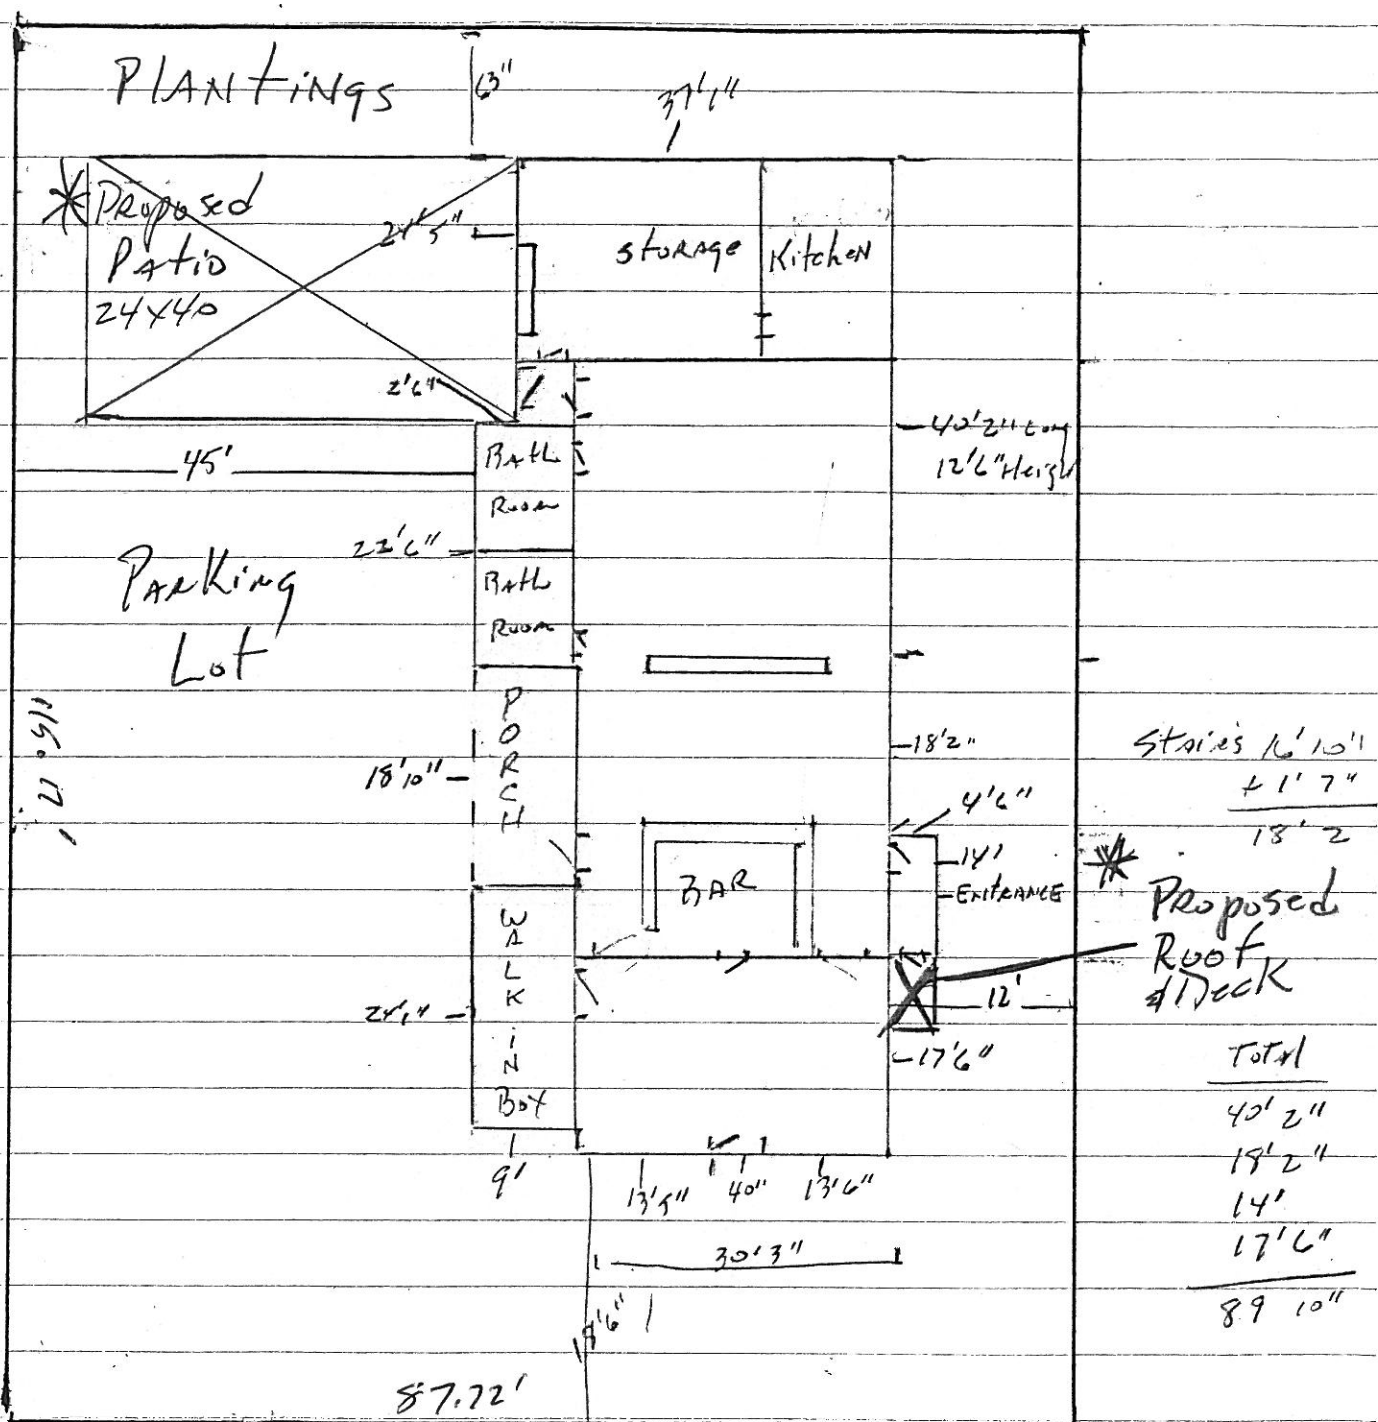 PLANTINGS
63"
37'1"
* Proposed
Patio
24X40
24'5"
Storage
Kitchen
2'6"
40'2" Long
12'6" Heigh
45'
Bath
Room
22'6"
Bath
Room
Parking
Lot
PORCH
18'10"
18'2"
Stairs 16'10"
+ 1'7"
18'2
4'6"
14'
Entrance
BAR
* Proposed
Roof
& Deck
WALK
IN
Box
24'1"
12'
17'6"
Total
40'2"
18'2"
14'
17'6"
89 10"
9'
13'5"
40"
13'6"
30'3"
18'6"
87.72'